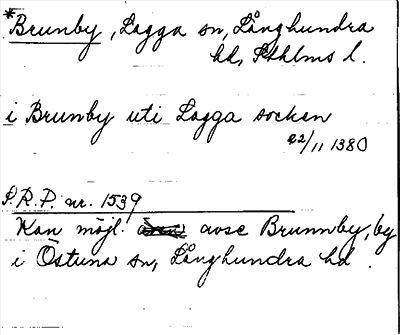 *Brunby, Lagga sn, Långhundra
hd, Sthlms l.
i Brunby uti Lagga socken
22/11 1380
S.R.P. nr. 1539
Kan möjl. avse Brunnby, by
i Östuna sn, Långhundra hd.